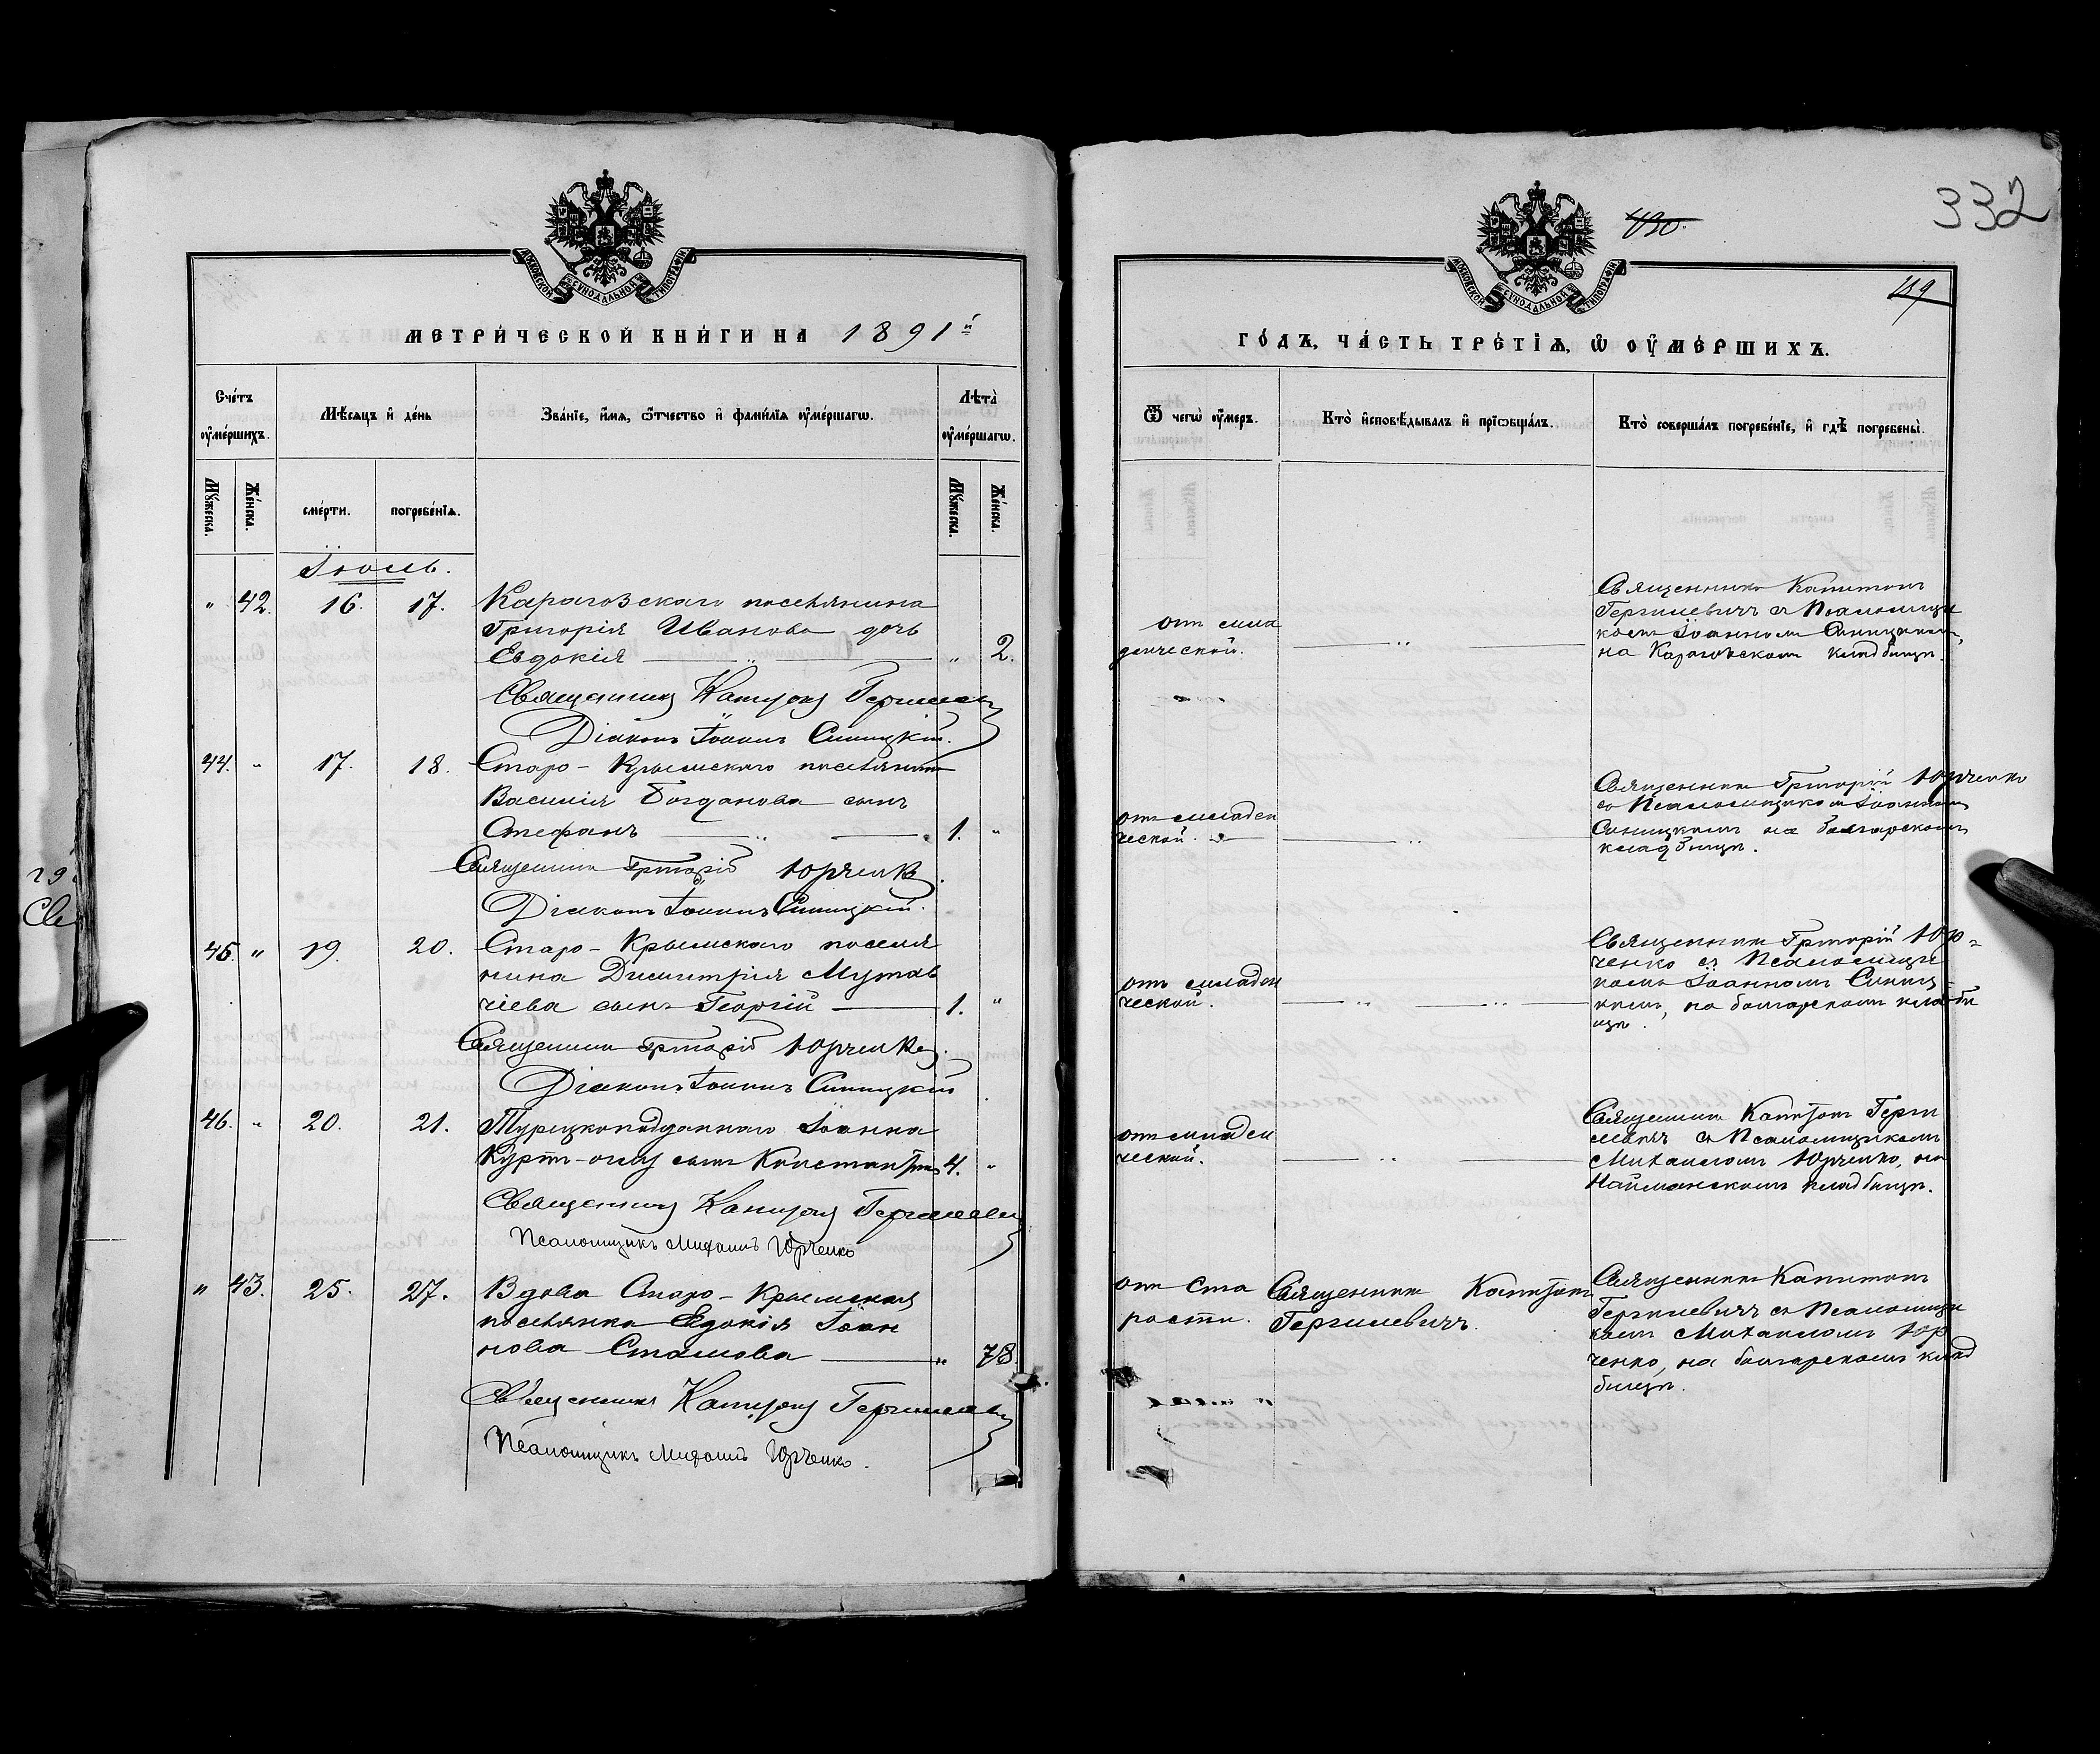 МОСКОВСКОЙ СѴНОДАЛЬНОЙ ТИПОГРАФІИ
МЕТРИ́ЧЕСКОЙ КНИ́ГИ НА 1891й
Сче́тъ ᲂу҆ме́ршихъ.
Мѣ́сяцъ и҆ де́нь
Зва́нїе, и҆́мѧ, ѻ҆́тчество и҆ фами́лїѧ ᲂу҆ме́ршагѡ.
Лѣта̀ ᲂу҆ме́ршагѡ.
Мꙋ́жеска.
Же́нска.
сме́рти.
погребе́нїѧ.
Мꙋ́жеска.
Же́нска.
Іюль.
" 42. 16. 17. Карагозскаго поселянина
Григорія Иванова дочь
Евдокія " 2.
Священникъ Капитонъ Гергилевичъ
Діаконъ Іоаннъ Синицкій.
44. " 17. 18. Старо-Крымскаго поселянина
Василія Богданова сынъ
Стефанъ 1. "
Священникъ Григорій Юрченко
Діаконъ Іоаннъ Синицкій.
45. " 19. 20. Старо-Крымскаго поселя
нина Димитрія Мутав
чіева сынъ Георгій 1. "
Священникъ Григорій Юрченко.
Діаконъ Іоаннъ Синицкій
46. " 20. 21. Турецкоподданнаго Іоанна
Курт-оглу сынъ Константинъ 4. "
Священникъ Капитонъ Гергилевичъ
Псаломщикъ Михаилъ Юрченко
" 43. 25. 27. Вдова Старо-Крымская
поселянка Евдокія Іоан
нова Стамова " 78.
Священникъ Капитонъ Гергилевичъ
Псаломщикъ Михаилъ Юрченко.
332
430.
119
МОСКОВСКОЙ СѴНОДАЛЬНОЙ ТИПОГРАФІИ
ГО́ДЪ, ЧА́СТЬ ТРЕ́ТЇѦ, Ѡ҆ ОУ҆МЕ́РШИХЪ.
Ѿ чегѡ̀ ᲂу҆́меръ.
Кто̀ и҆сповѣ́дывалъ и҆ прїѡбща́лъ.
Кто̀ соверша́лъ погребе́нїе, и҆ гдѣ̀ погребены̀.
от мла
денческой.
Священникъ Капитонъ
Гергилевичъ съ Псаломщи
комъ Іоанномъ Синицкимъ,
на Карагозскомъ кладбищѣ.
от младен
ческой.
Священникъ Григорій Юрченко
съ Псаломщикомъ Іоанномъ
Синицкимъ на болгарскомъ
кладбищѣ.
отъ младен
ческой.
Священникъ Григорій Юр=
ченко съ Псаломщи
комъ Іоанномъ Синиц
кимъ, на болгарскомъ кладби
щѣ.
от младен
ческой.
Священникъ Капитонъ Герги
левичъ съ Псаломщикомъ
Михаиломъ Юрченко, на
Найманскомъ кладбищѣ.
от ста
рости.
Священникъ Капитонъ
Гергилевичъ.
Священникъ Капитонъ
Гергилевичъ съ Псаломщи
комъ Михаиломъ Юр
ченко, на болгарскомъ клад
бищѣ.